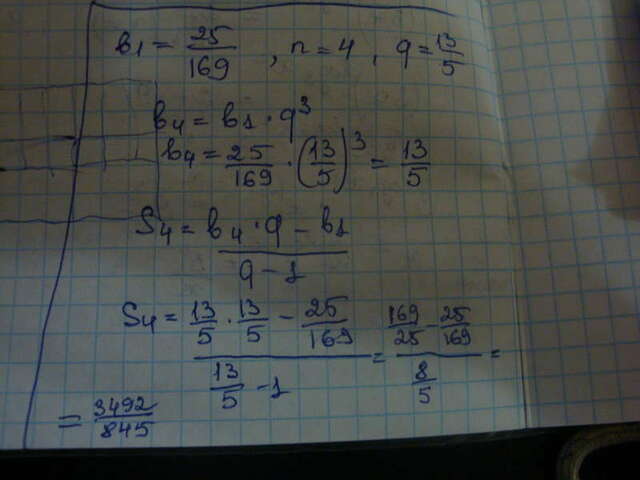 в1 = 25/169 , n = 4 , q = 13/5
в4 = в1 · q³
в4 = 25/169 · (13/5)³ = 13/5
S4 = (в4 · q - в1)/(q - 1)
S4 = (13/5 · 13/5 - 25/169)/(13/5 - 1) = (169/25 - 25/169)/(8/5) =
= 3492/845